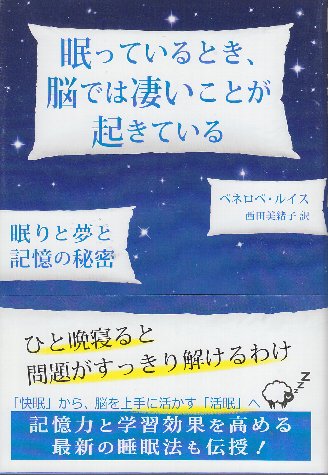 眠っているとき、
脳では凄いことが
起きている
ペネロペ・ルイス
西田美緒子 訳
眠りと夢と
記憶の秘密
ひと晩寝ると
問題がすっきり解けるわけ
「快眠」から、脳を上手に活かす「活眠」へ
zzz
記憶力と学習効果を高める
最新の睡眠法も伝授！